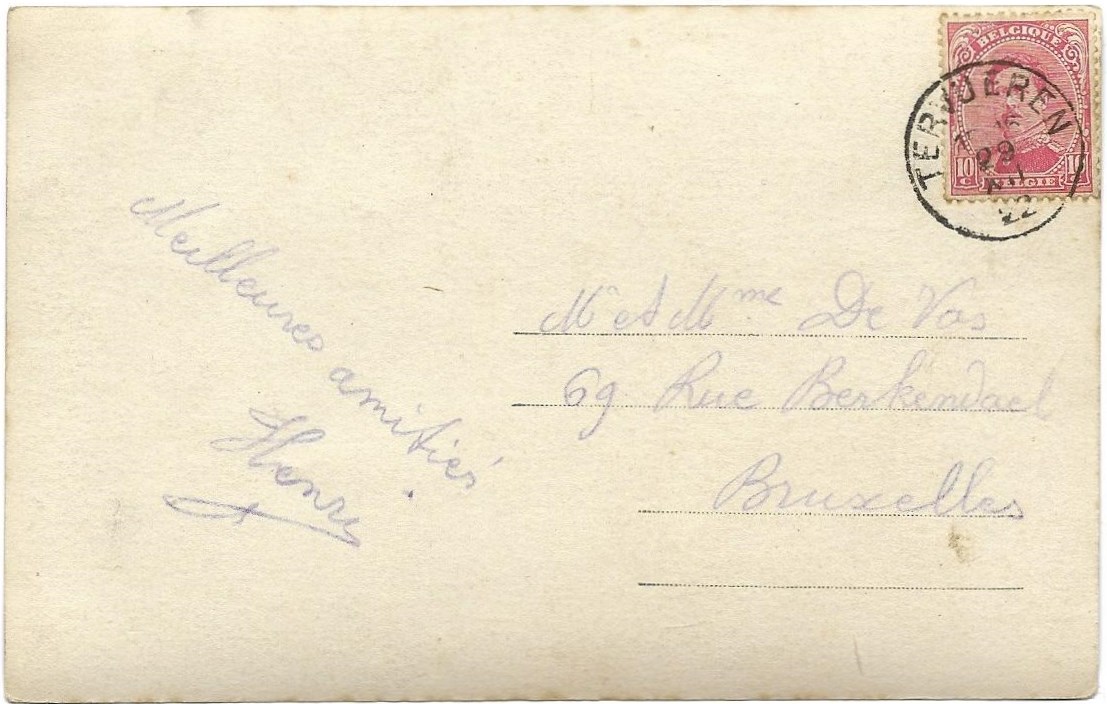 BELGIQUE
10 C
BELGIE
TERVUEREN
29
22
Meilleures amitiés
Henri
Mr et Mme De Vos
69 Rue Berkendael
Bruxelles